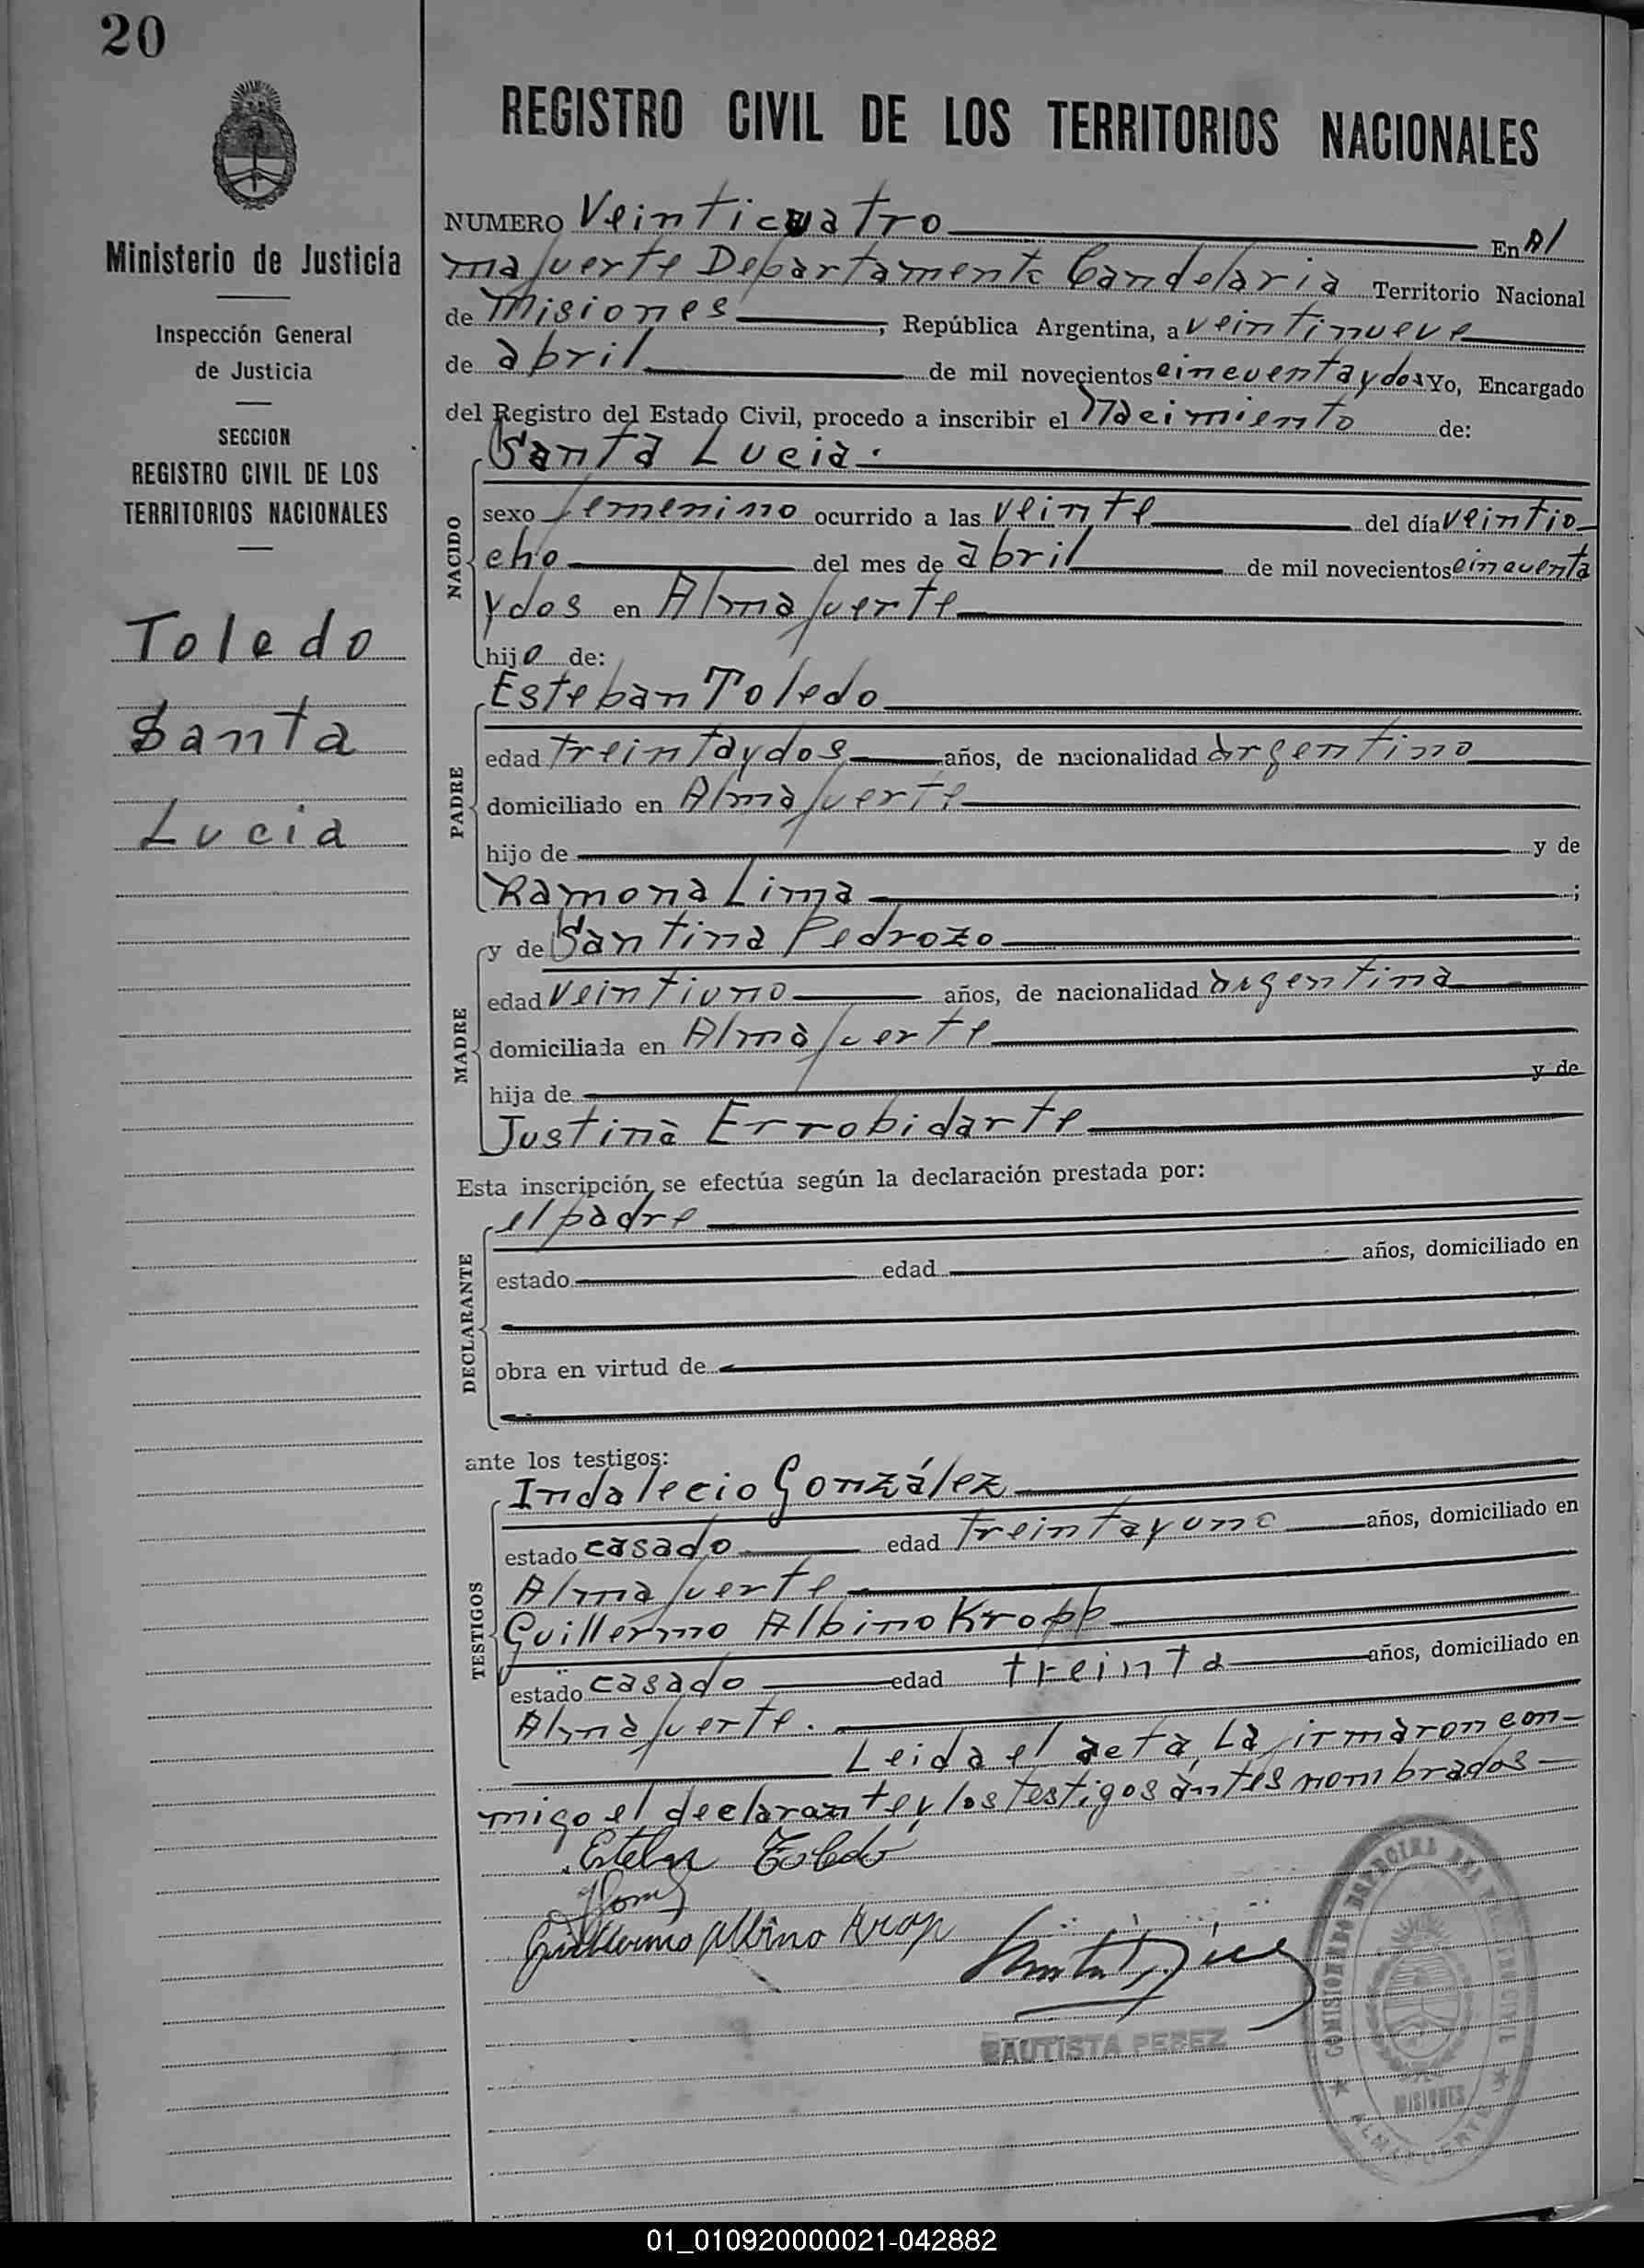 20
Ministerio de Justicia
Inspección General
de Justicia
SECCION
REGISTRO CIVIL DE LOS
TERRITORIOS NACIONALES
Toledo
Santa
Lucia
REGISTRO CIVIL DE LOS TERRITORIOS NACIONALES
NUMERO Veinticuatro En Al
mafuerte Departamento Candelaria Territorio Nacional
de Misiones, República Argentina, a veintinueve
de abril de mil novecientos cincuenta y dos Yo, Encargado
del Registro del Estado Civil, procedo a inscribir el Nacimiento de:
Santa Lucia.
NACIDO
sexo femenino ocurrido a las veinte del día veintio
cho del mes de abril de mil novecientos cincuenta
y dos en Almafuerte
hijo de:
Esteban Toledo
PADRE
edad treinta y dos años, de nacionalidad argentino
domiciliado en Almafuerte
hijo de y de
Ramona Lima ;
y de Santina Pedrozo
MADRE
edad veintiuno años, de nacionalidad argentina
domiciliada en Almafuerte
hija de y de
Justina Errobidarte
Esta inscripción se efectúa según la declaración prestada por:
el padre
DECLARANTE
estado edad años, domiciliado en
obra en virtud de
ante los testigos:
Indalecio González
TESTIGOS
estado casado edad treinta y uno años, domiciliado en
Almafuerte
Guillermo Albino Kropp
estado casado edad treinta años, domiciliado en
Almafuerte.
Leida el acta, La firmaron con-
migo el declarante y los testigos antes nombrados
Esteban Toledo
Guillermo Albino Krop
BAUTISTA PEREZ
COMISIONADO ESPECIAL DEL REGISTRO CIVIL
MISIONES
ALMAFUERTE
01_010920000021-042882